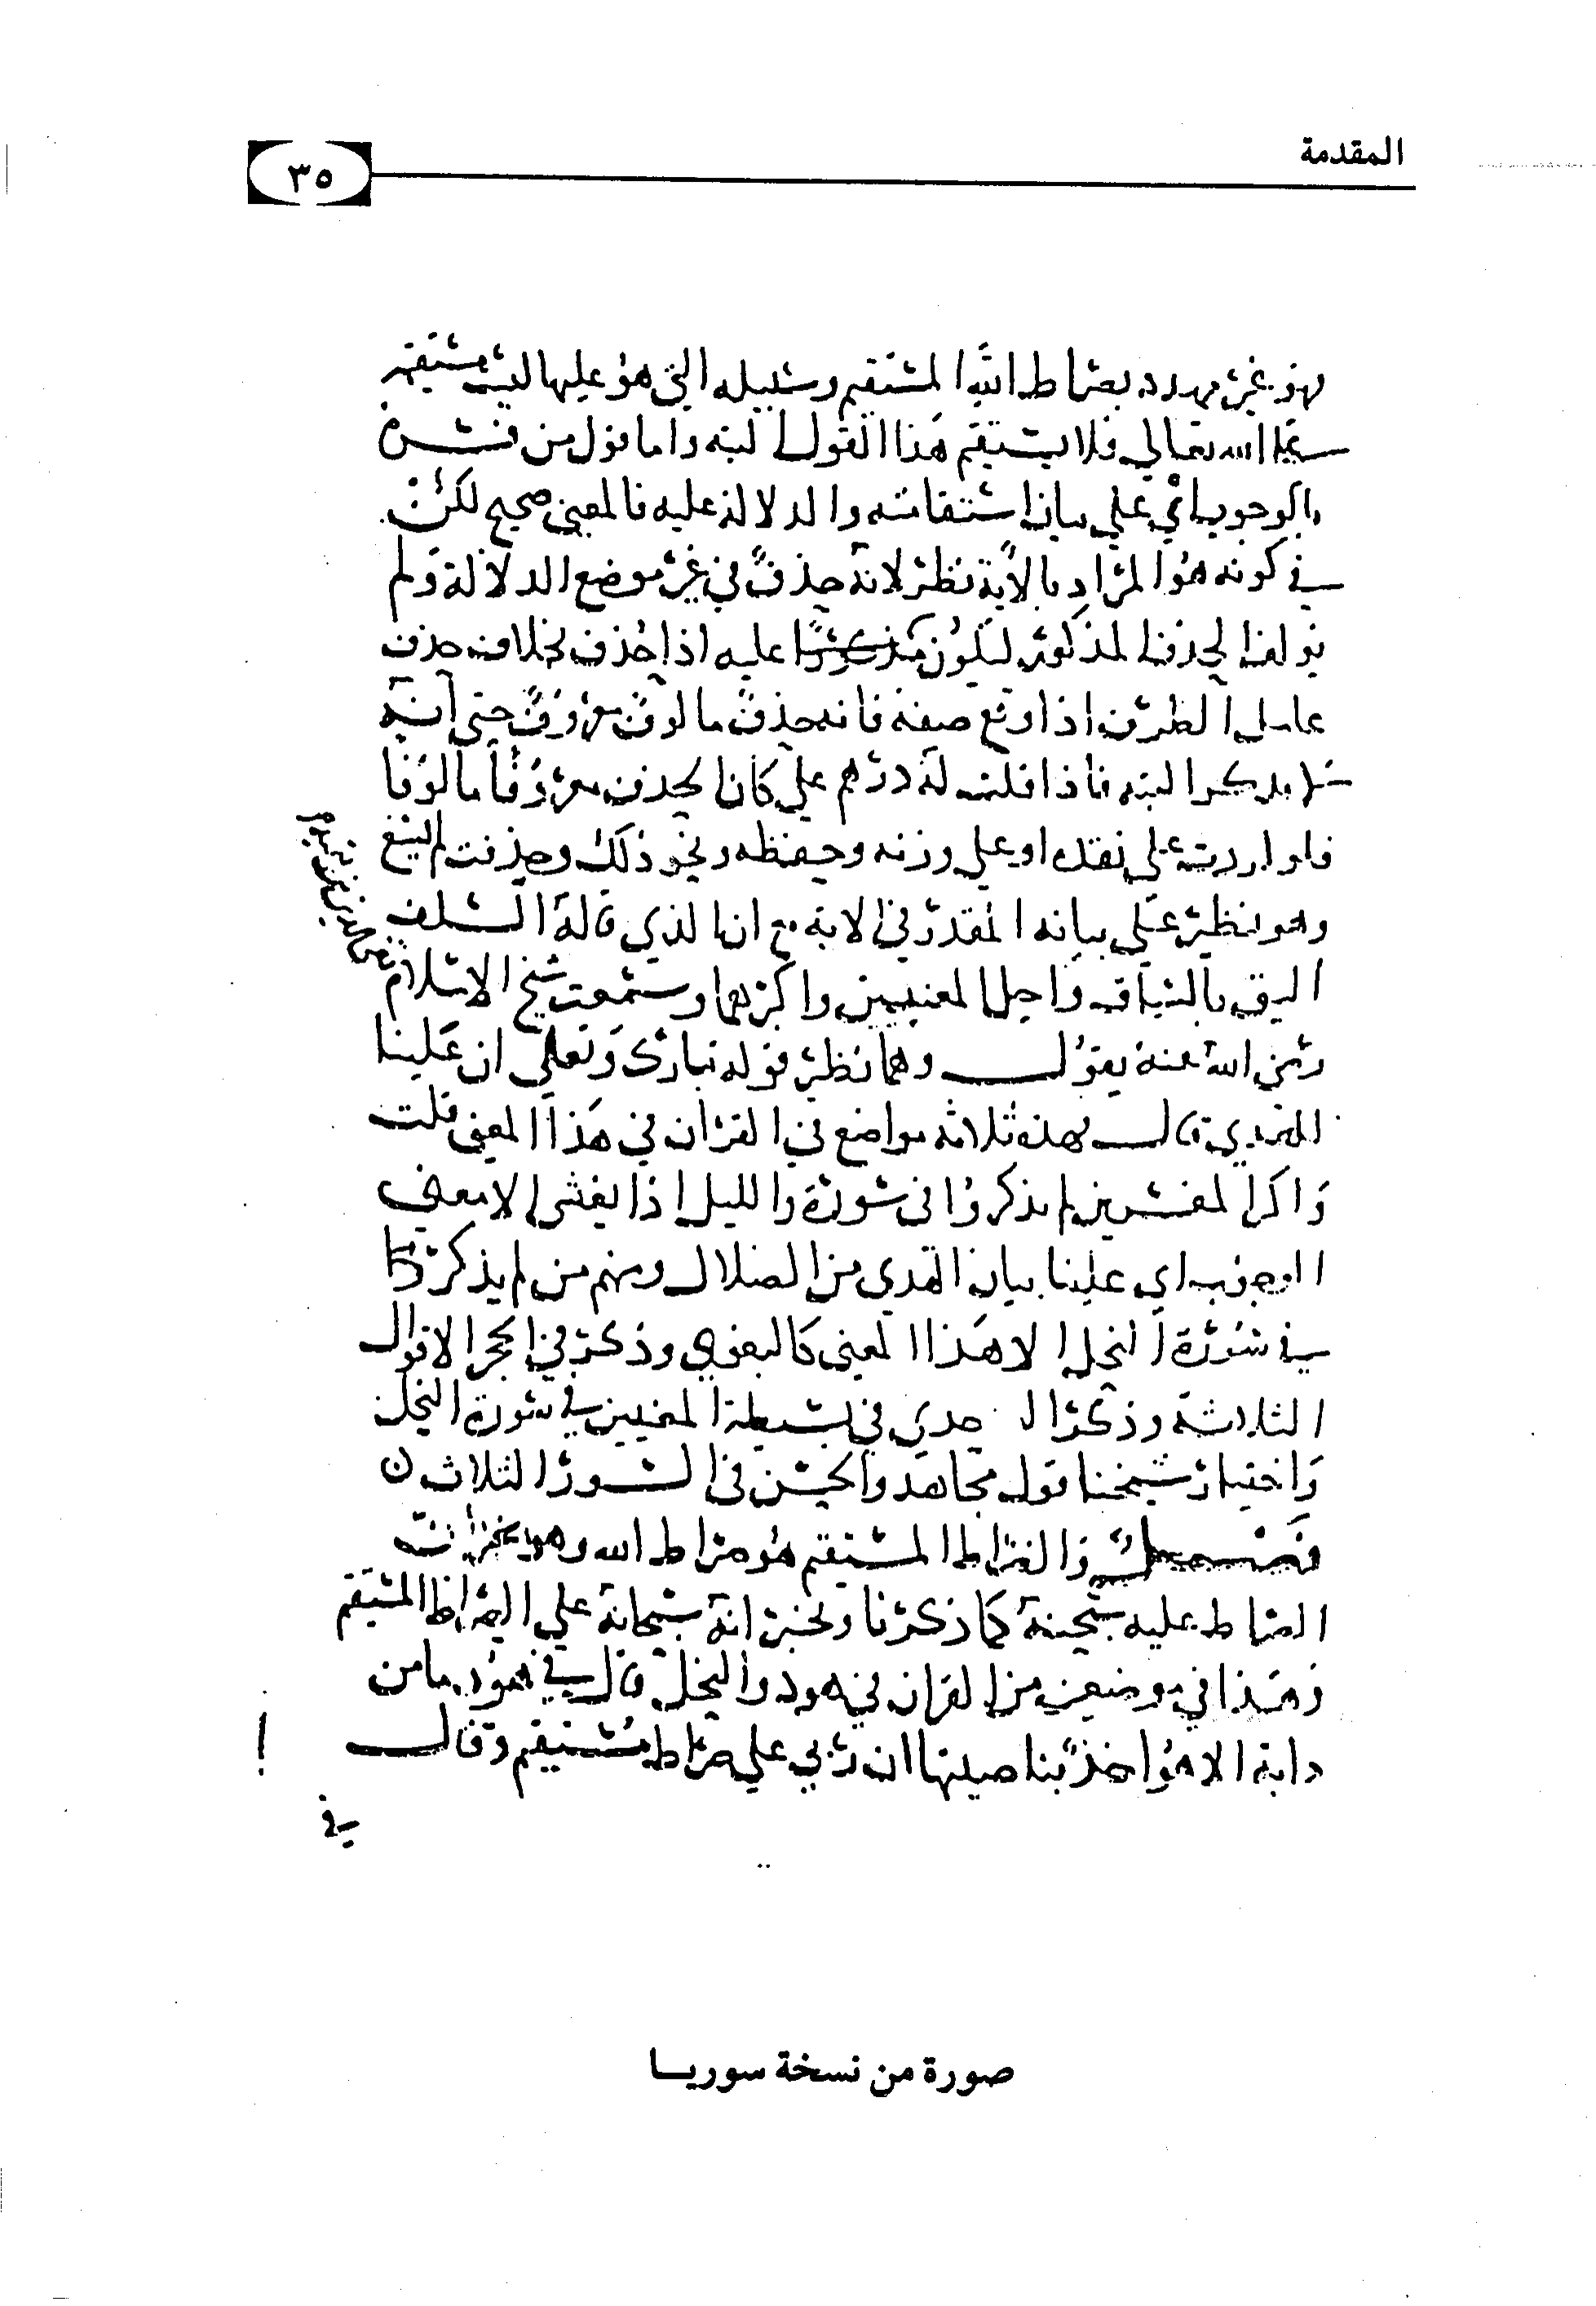 المقدمة
٣٥
فهو غير مهدد بصراط الله المستقيم وسبيله التي هو عليها ليست مستقيمة
علي الله تعالي فلا يستقيم هذا القول البته واما قول من فسره
بالوجوب اي علي بيان استقامته والدلالة عليه فالمعني صحيح لكن
في كونه هو المراد بالآية نظر لانه حذف في غير موضع الدلالة ولم
يولف الحذف المذكور ليكون عليه اذا حذف بخلاف حذف
عامل الظرف اذا وقع صفة فانه حذف مالوف معروف حتي انه
لا يذكر البته فاذا قلت له درهم علي كان الحذف معروفا مالوفا
فلو اردت علي نقده او علي وزنه وحفظه ونحو ذلك وحذفت لم يسغ
وهو نظير علي بيانه المقدر في الاية مع ان الذي قاله السلف
اليق بالسياق واجل المعنيين واكبرهما وسمعت شيخ الاسلام
رضي الله عنه يقول وهما نظير قوله تبارك وتعلي ان علينا
للهدي قال فهذه ثلاثة مواضع في القران في هذا المعني قلت
واكثر المفسرين لم يذكروا في سورة والليل اذا يغشي الا معني
الوجوب اي علينا بيان الهدي من الضلال ومنهم من لم يذكر
في سورة النحل الا هذا المعني كالبغوي وذكر في الحجر الاقوال
الثلاثة وذكر الواحدي في بسيطه المعنيين في سورة النحل
واختيار شيخنا قول مجاهد والحسن في السور الثلاث
فصل والصراط المستقيم هو صراط الله وهو يخبر ان
الصراط عليه سبحنه كما ذكرنا ويخبر انه سبحانه علي الصراط المستقيم
وهذا في موضعين من القران في هود والنحل قال في هود ما من
دابة الا هو اخذ بناصيتها ان ربي علي صراط مستقيم وقال
في
صورة من نسخة سوريا